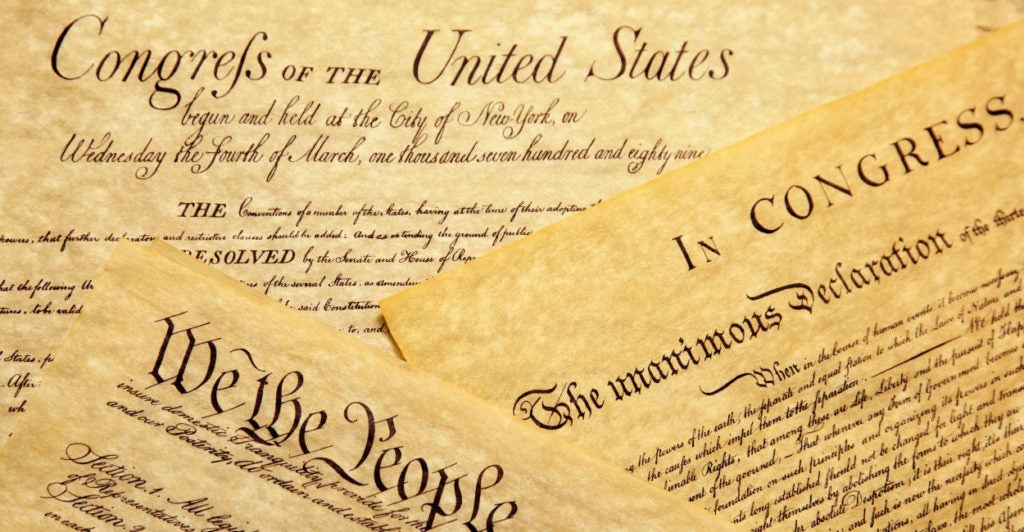 Congreſs OF THE United States
begun and held at the City of New-York, on
Wednesday the fourth of March, one thousand seven hundred and eighty nine
THE Conventions of a number of the States, having at the time of their adopting
powers, that further declaratory and restrictive clauses should be added: And as extending the ground of public
RESOLVED by the Senate and House of Rep
that the following
of the several States, as amendments
said Constitution
to, and
States,
After
wh
We the People
insure domestic Tranquility, provide for the
and our Posterity, do ordain and establish
Section. 1. All legis
of Representatives
Section. 2.
on each
IN CONGRESS.
The unanimous Declaration of the thirteen
When in the Course of human events it becomes necessary
the powers of the earth, the separate and equal station to which the Laws of Nature and
the causes which impel them to the separation. We hold the
unalienable Rights, that among these are Life, Liberty and the pursuit of Happ
of the governed, — That whenever any Form of Government becomes
foundation on such principles and organizing its powers in such
long established should not be changed for light and trans
themselves by abolishing the forms to which they are
absolute Despotism, it is their right, it is their
and such is now the necessity which
all having in direct